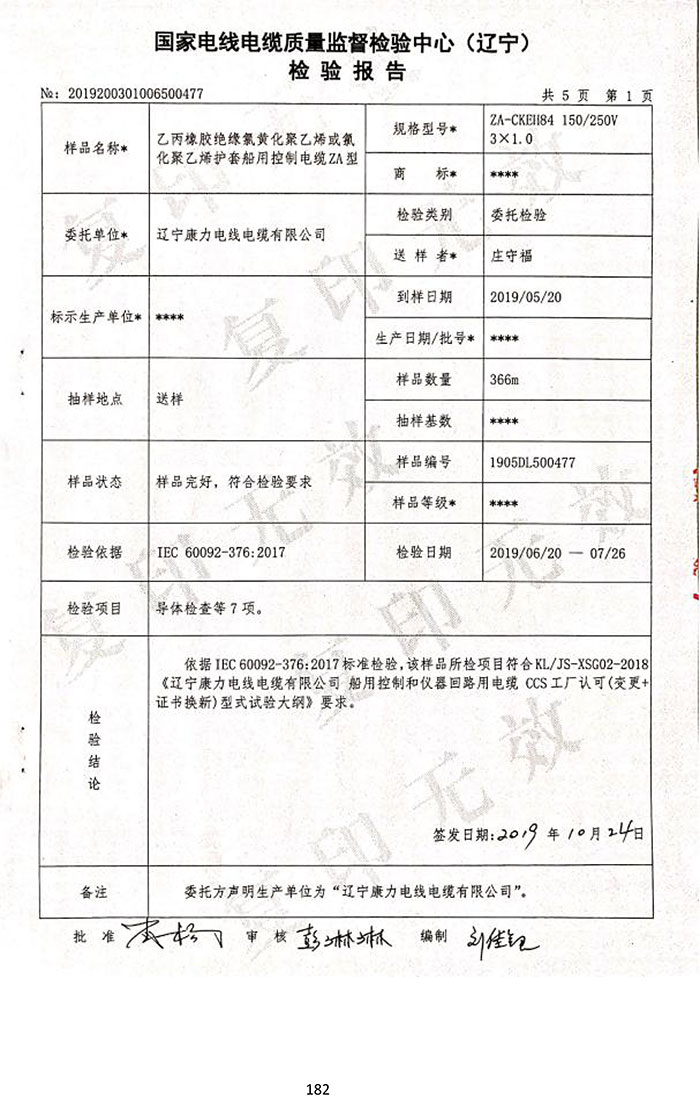 国家电线电缆质量监督检验中心（辽宁）
检 验 报 告
№: 2019200301006500477
共 5 页 第 1 页
样品名称*
乙丙橡胶绝缘氯黄化聚乙烯或氯
化聚乙烯护套船用控制电缆ZA型
规格型号*
ZA-CKEH84 150/250V
3×1.0
商 标*
****
委托单位*
辽宁康力电线电缆有限公司
检验类别
委托检验
送 样 者*
庄守福
标示生产单位*
****
到样日期
2019/05/20
生产日期/批号*
****
抽样地点
送样
样品数量
366m
抽样基数
****
样品状态
样品完好，符合检验要求
样品编号
1905DL500477
样品等级*
****
检验依据
IEC 60092-376:2017
检验日期
2019/06/20 — 07/26
检验项目
导体检查等7项。
检
验
结
论
依据IEC 60092-376:2017标准检验,该样品所检项目符合KL/JS-XSG02-2018
《辽宁康力电线电缆有限公司 船用控制和仪器回路用电缆 CCS工厂认可(变更+
证书换新)型式试验大纲》要求。
签发日期:2019 年 10 月 24 日
备注
委托方声明生产单位为“辽宁康力电线电缆有限公司”。
批 准
审 核 彭琳琳
编制
复印无效
复印无效
复印无效
复印无效
182